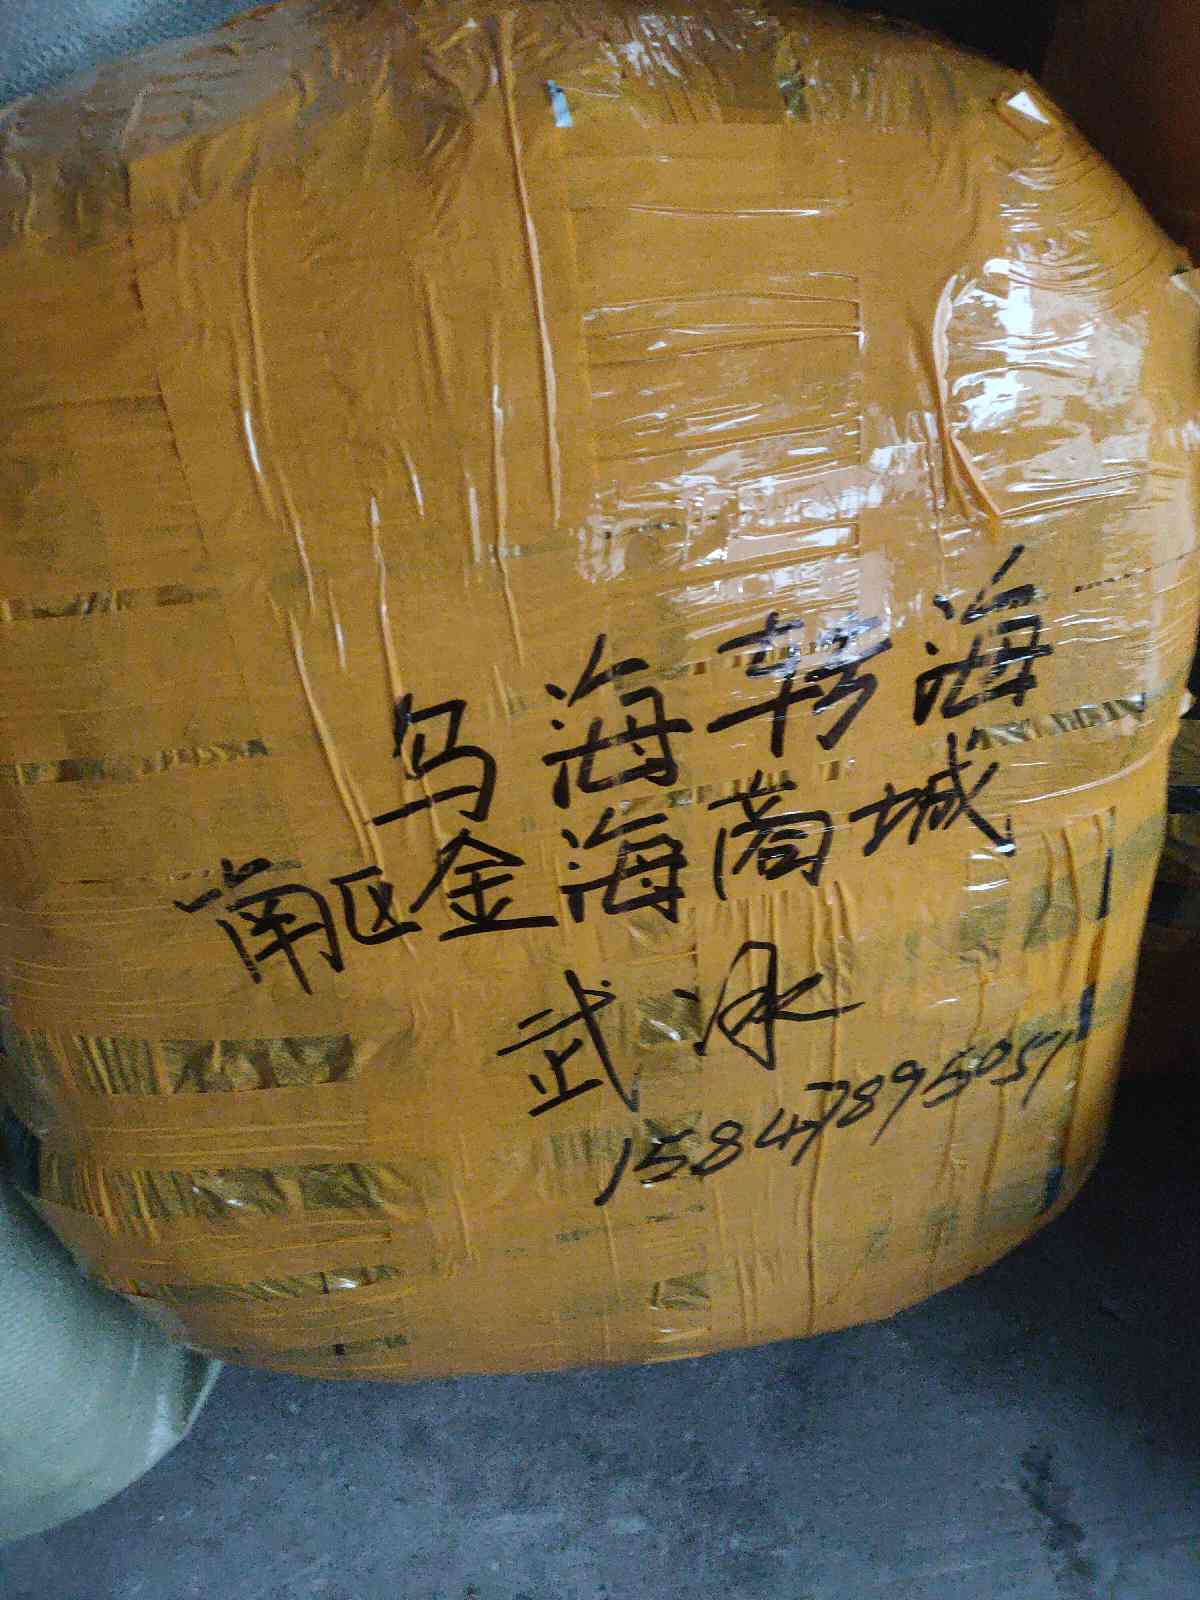 乌海转海
南区金海商城
武冰
15847895051